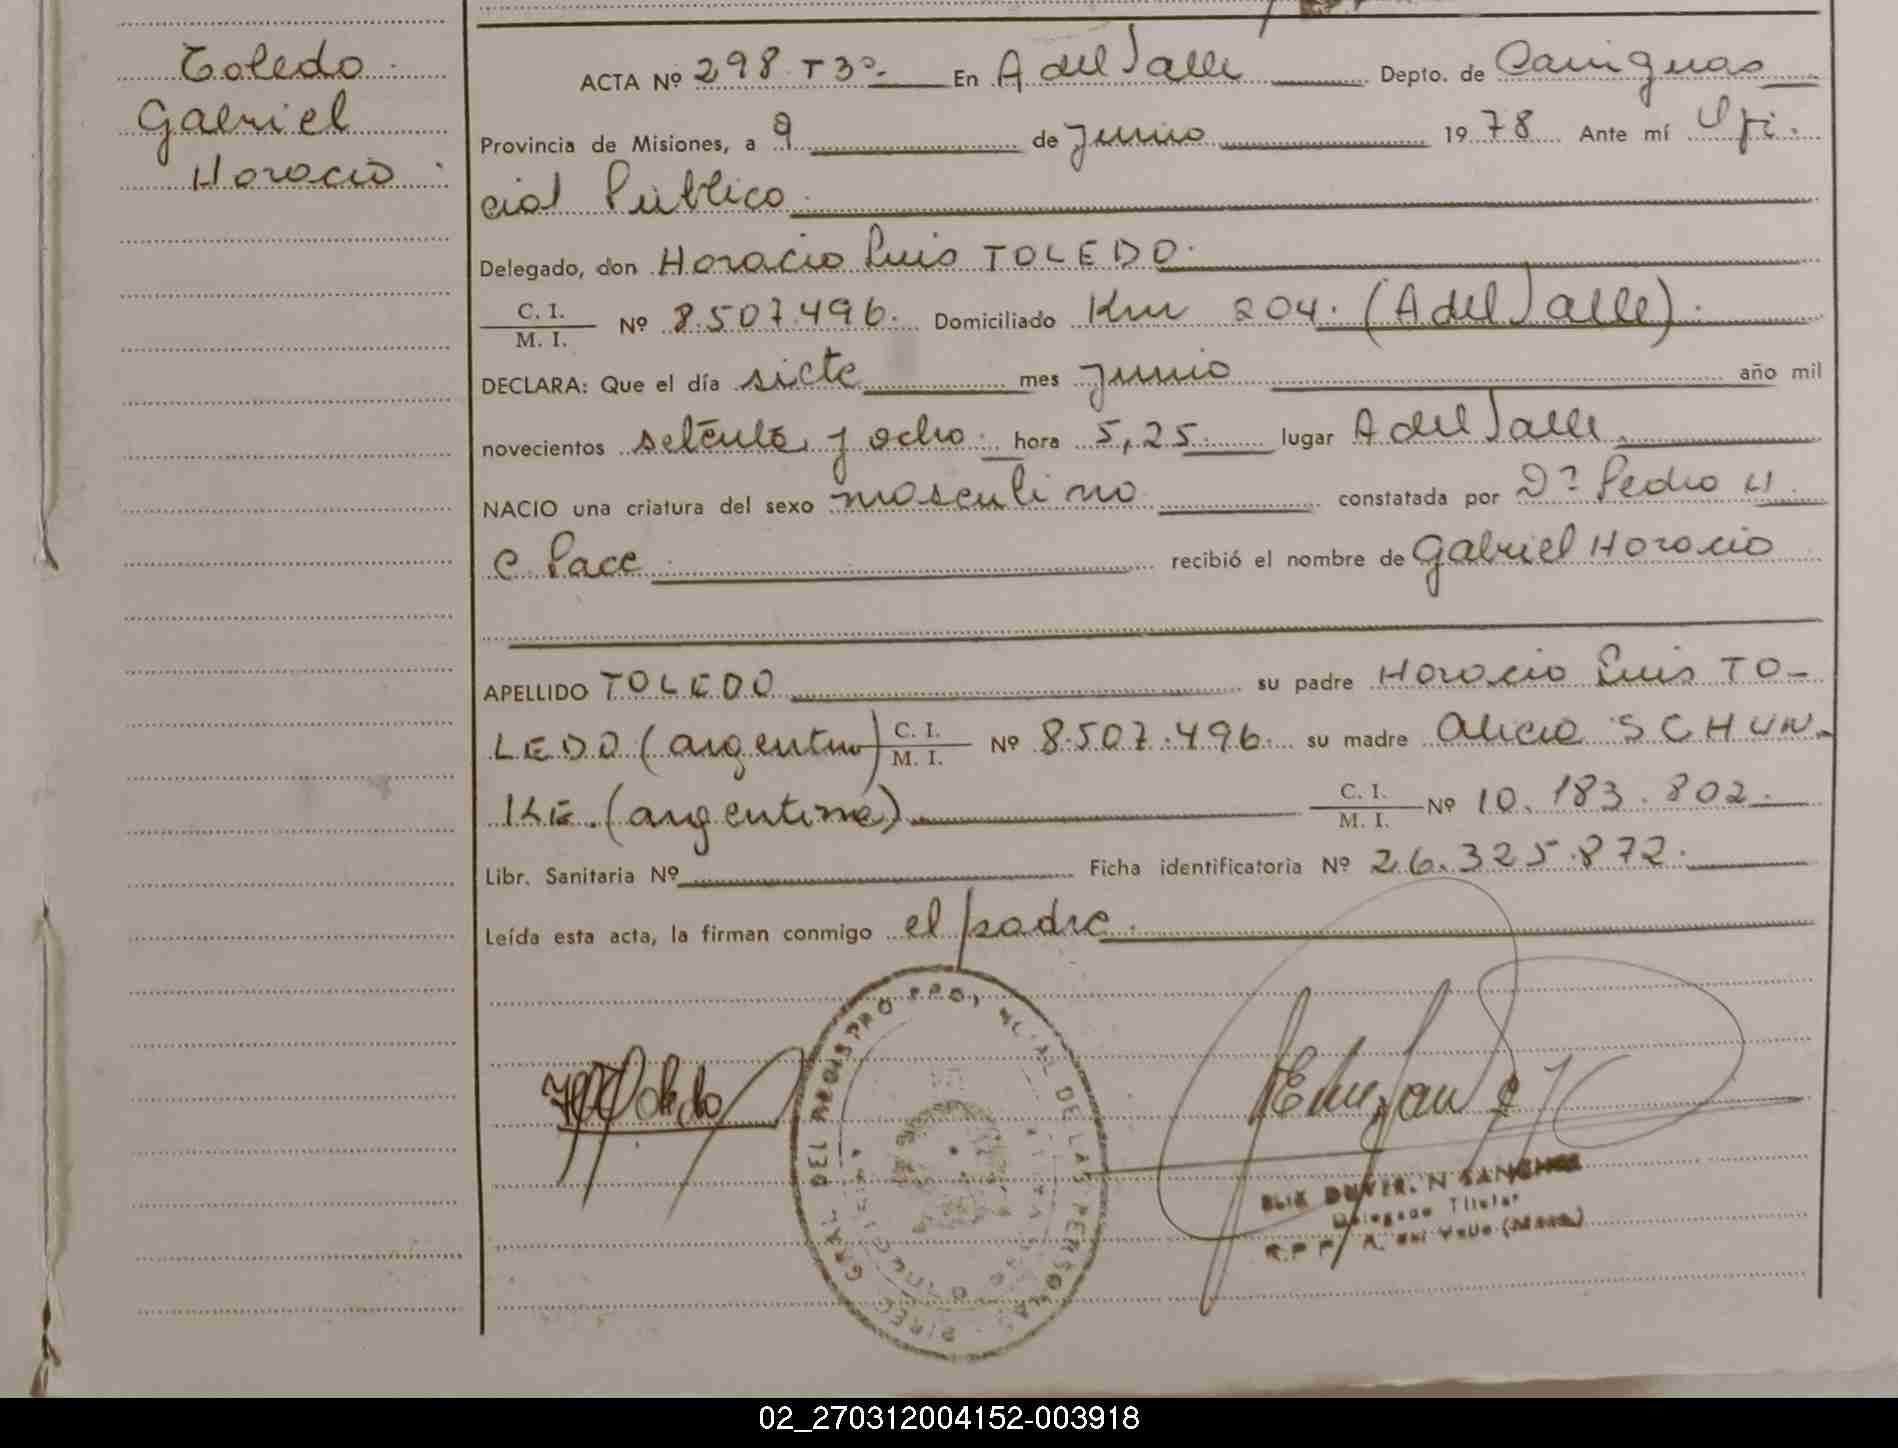 Toledo
Gabriel
Horacio
ACTA Nº 298 T3º En A del Valle Depto. de Cainguas
Provincia de Misiones, a 9 de junio 1978 Ante mí Ofi-
cial Público
Delegado, don Horacio Luis TOLEDO.
C. I.
M. I. Nº 8.507.496. Domiciliado Km 204. (A del Valle).
DECLARA: Que el día siete mes junio año mil
novecientos setenta y ocho. hora 5,25. lugar A del Valle
NACIO una criatura del sexo masculino constatada por Dr Pedro H.
C. Pace recibió el nombre de Gabriel Horacio
APELLIDO TOLEDO su padre Horacio Luis TO-
LEDO (argentino) C. I. M. I. Nº 8.507.496. su madre Alicia SCHUN-
KE. (argentina) C. I. M. I. Nº 10.183.802.
Libr. Sanitaria Nº Ficha identificatoria Nº 26.325.872.
Leída esta acta, la firman conmigo el padre.
Toledo
DIREC. GRAL DEL REGISTRO PROVINCIAL DE LAS PERSONAS
SANCHEZ
Delegado Titular
R.P.P. A. del Valle (Mnes.)
02_270312004152-003918